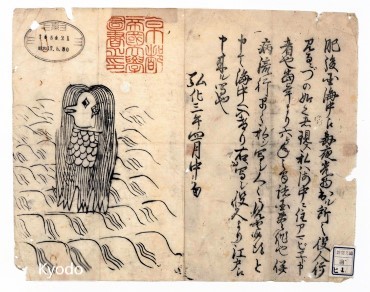 肥後国海中え毎夜光物出ル所之役人行
見るニづの如く者現ス私ハ海中ニ住アマビヱト申
者也当年より六ヶ年之間諸国豊作也併
病流行早々私ヲ写シ人々ニ見セ候得と
申て海中へ入けり右写シ役人より江戸え
申来ル写也
弘化三年四月中旬
京都
帝国大学
図書之印
Kyodo